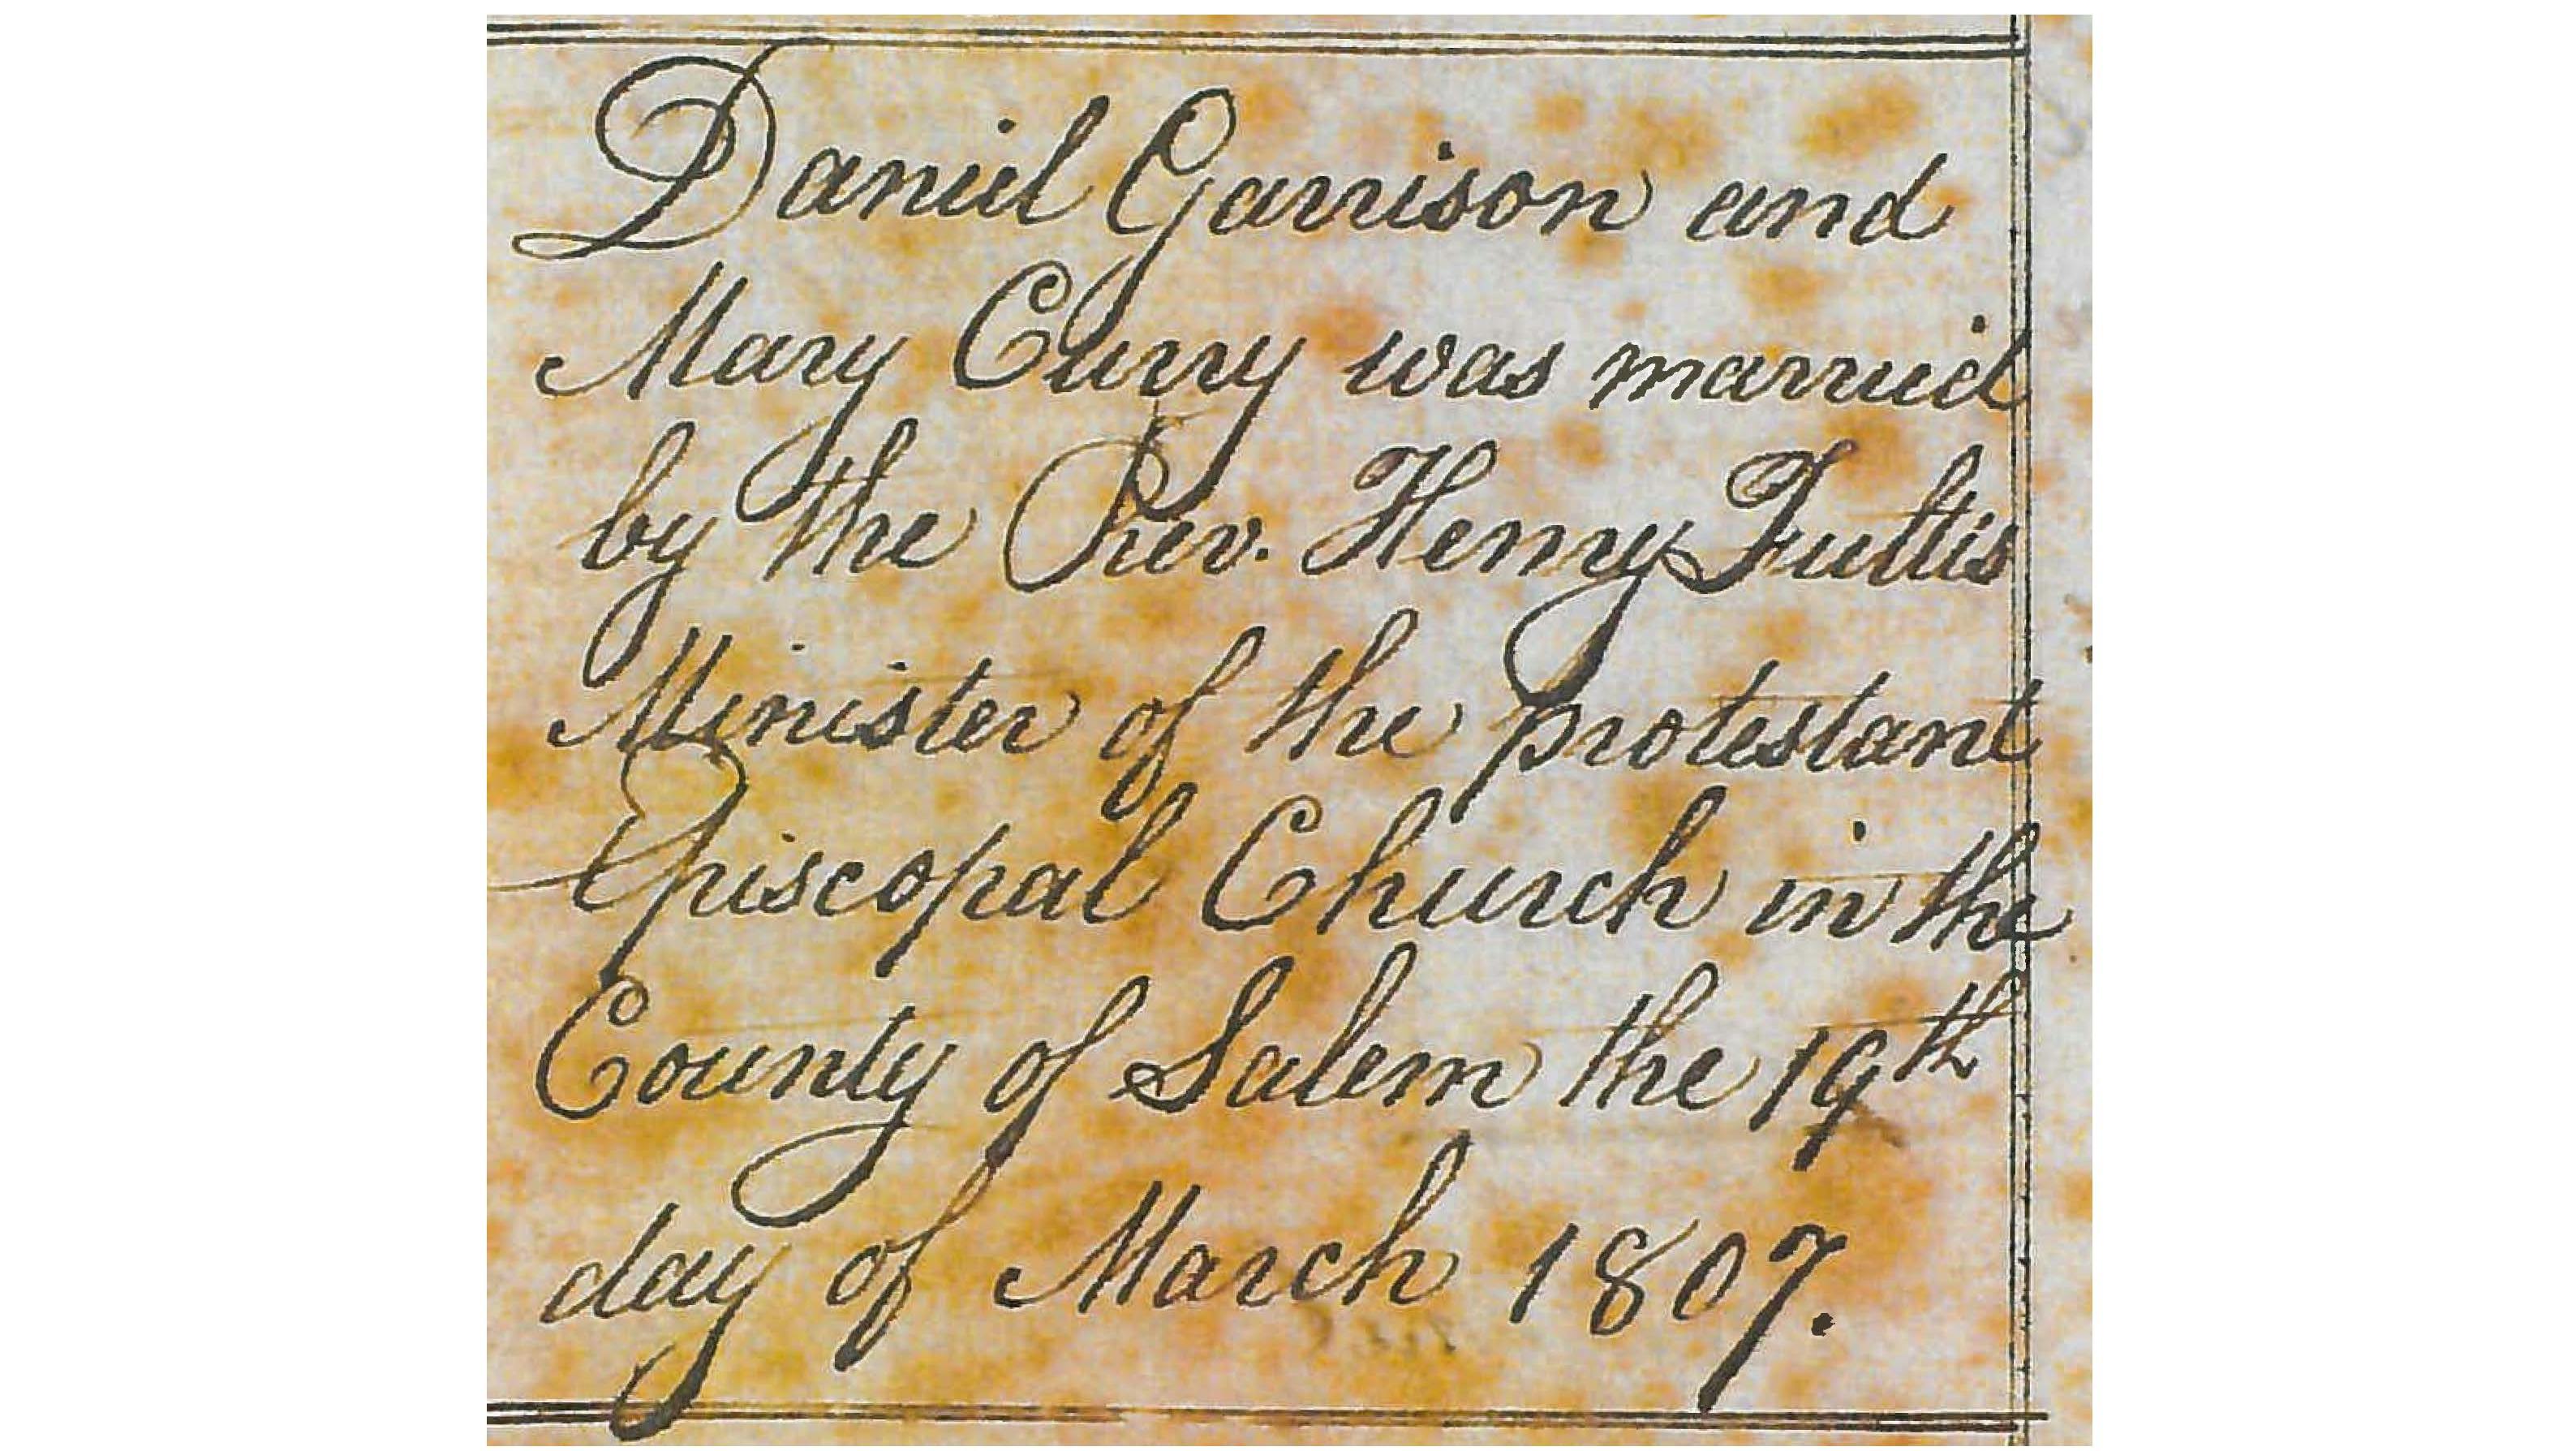 Daniel Garrison and
Mary Curry was married
by the Rev. Henry
Minister of the protestant
Episcopal Church in the
County of Salem the 19th
day of March 1807.